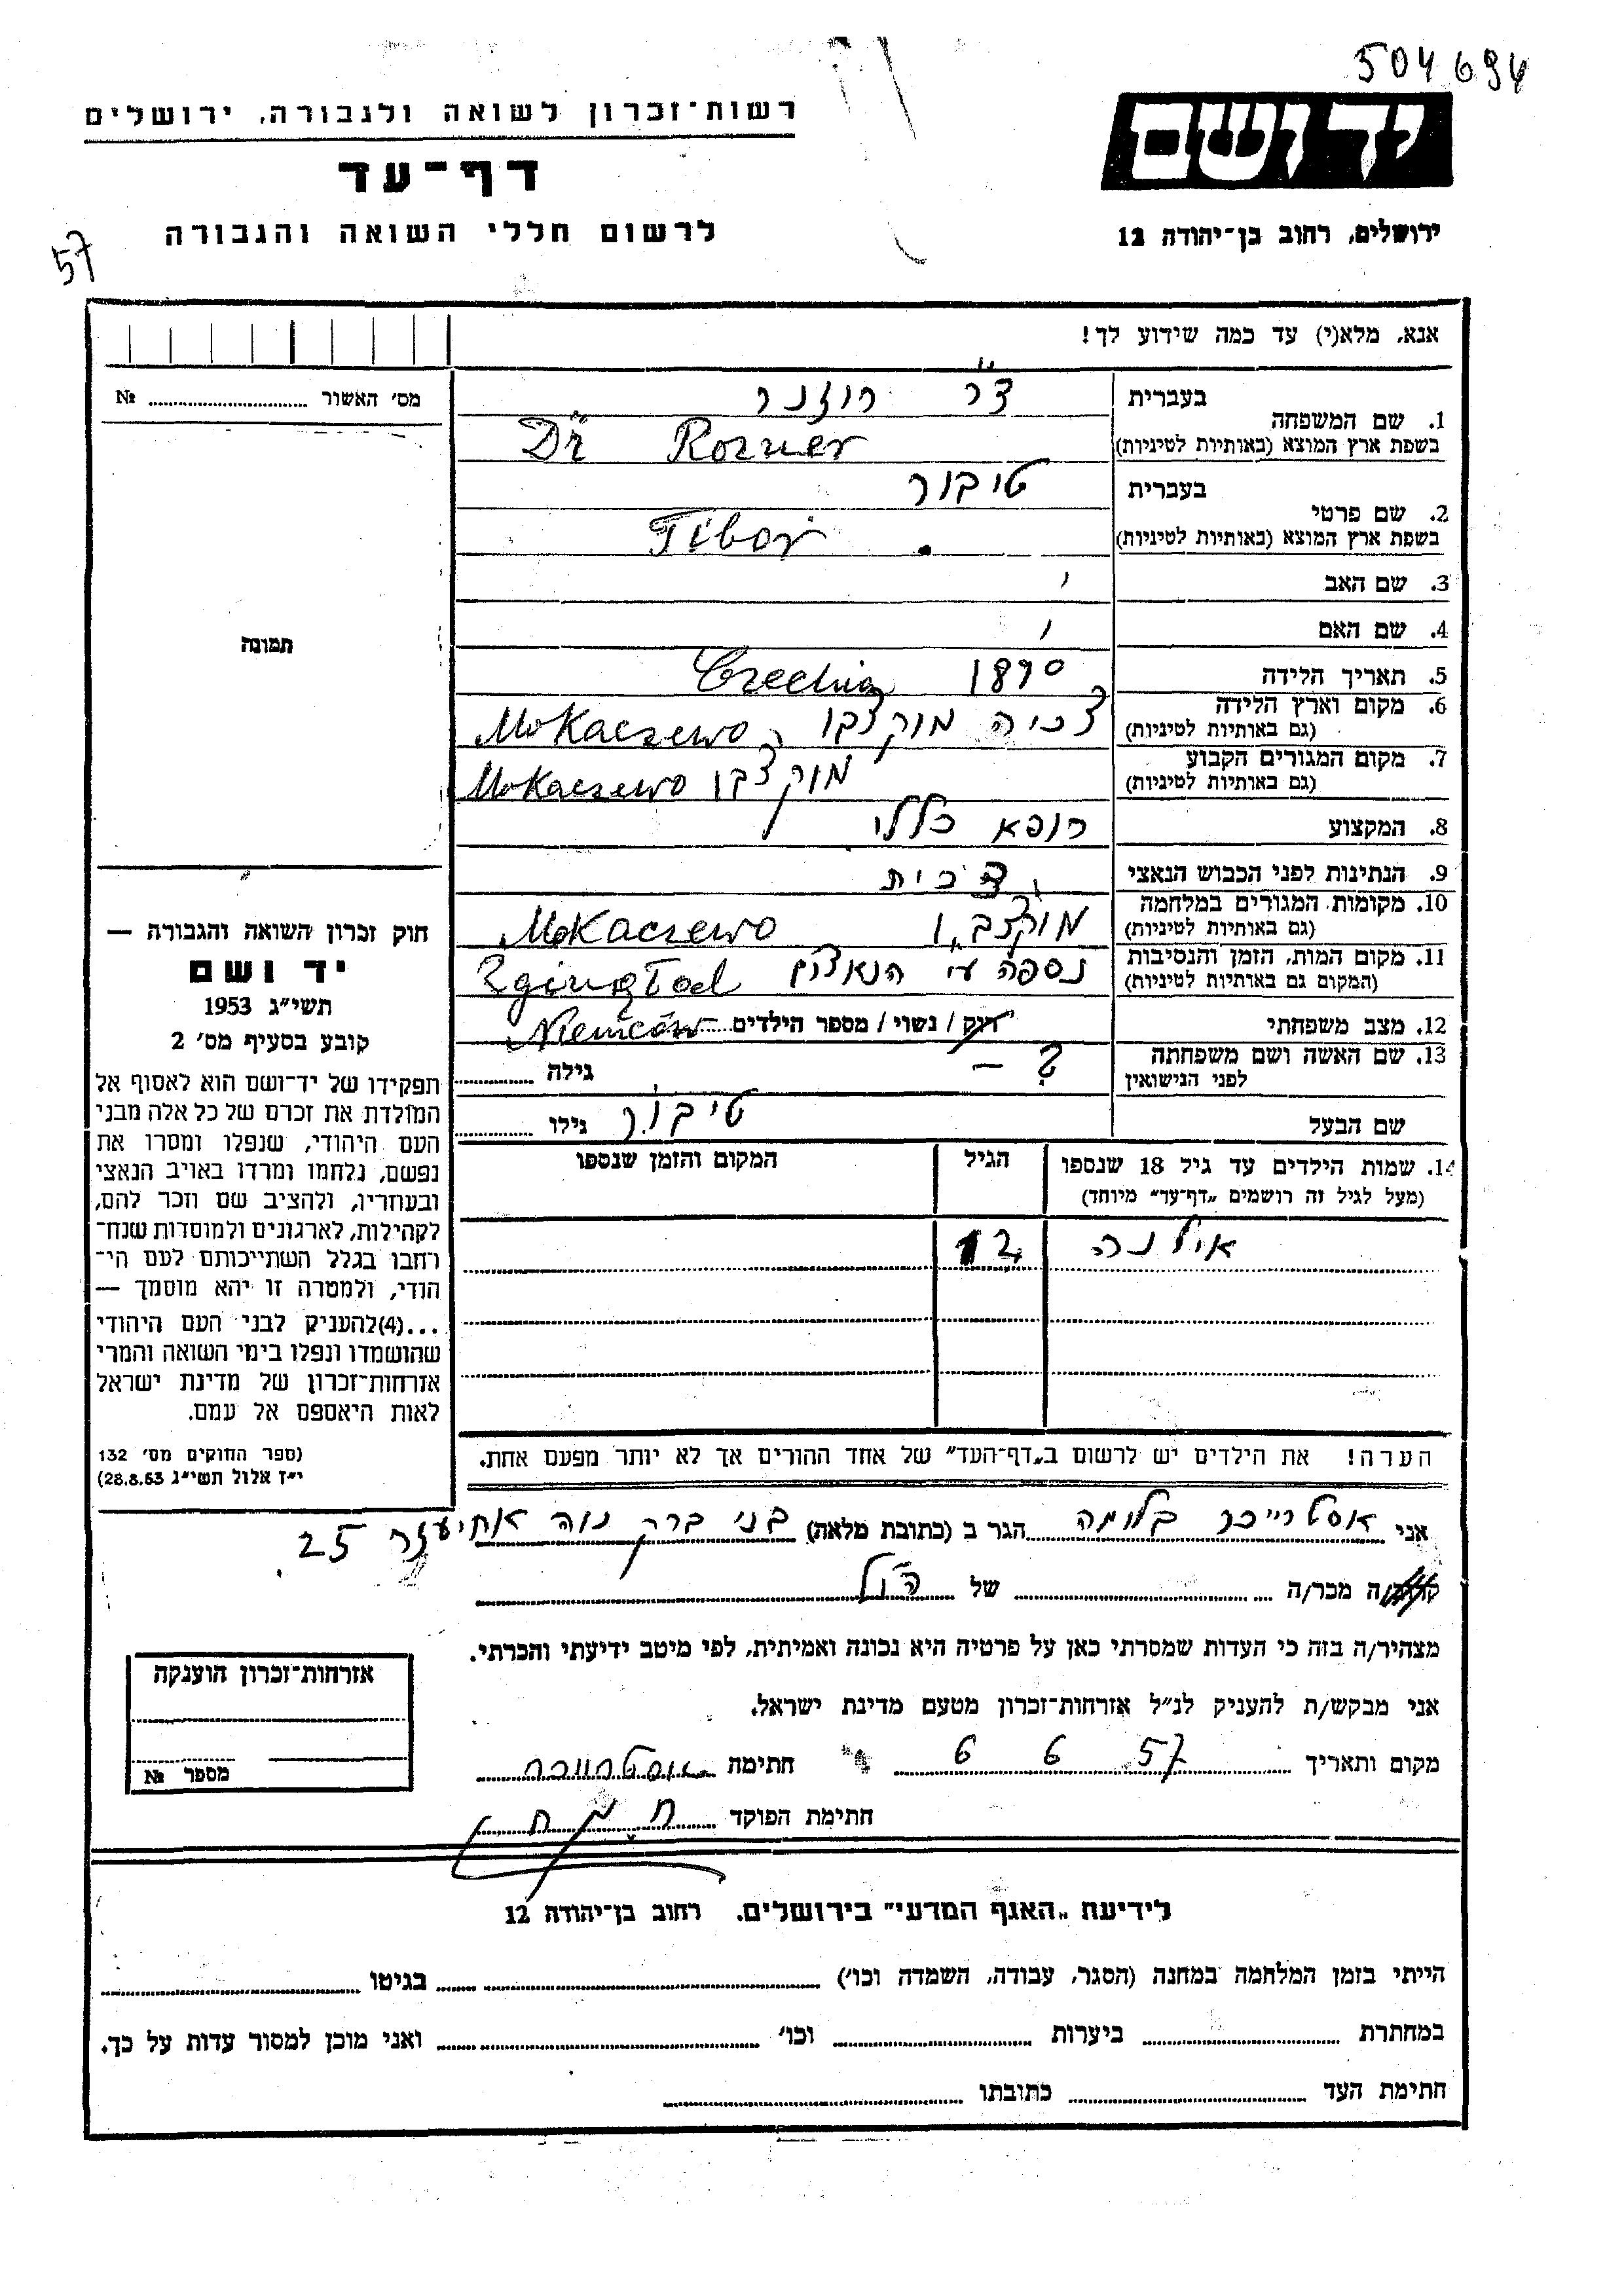 504694
רשות־זכרון לשואה ולגבורה, ירושלים
יד ושם
דף־עד
לרשום חללי השואה והגבורה
ירושלים, רחוב בן־יהודה 12
57
אנא, מלא(י) עד כמה שידוע לך!
מס׳ האשור № 
1. שם המשפחה
בעברית ד״ר רוזנר
בשפת ארץ המוצא (באותיות לטיניות) Dr Rozner
2. שם פרטי
בעברית טיבור
בשפת ארץ המוצא (באותיות לטיניות) Tibor
3. שם האב
4. שם האם
5. תאריך הלידה 1890 Czechia
6. מקום וארץ הלידה
(גם באותיות לטיניות) צ׳כיה מוקצבו Mokaczewo
7. מקום המגורים הקבוע
(גם באותיות לטיניות) מוקצבו Mokaczewo
8. המקצוע רופא כללי
9. הנתינות לפני הכבוש הנאצי צ׳כית
10. מקומות המגורים במלחמה
(גם באותיות לטיניות) מוקצבו Mokaczewo
11. מקום המות, הזמן והנסיבות
(המקום גם באותיות לטיניות) נספה ע״י הנאצים Zginął od
Niemców
12. מצב משפחתי רוק / נשוי / מספר הילדים
13. שם האשה ושם משפחתה
לפני הנישואין ? — גילה
שם הבעל טיבור גילו
14. שמות הילדים עד גיל 18 שנספו הגיל המקום והזמן שנספו
(מעל לגיל זה רושמים „דף־עד״ מיוחד)
אילנה 12
הערה! את הילדים יש לרשום ב„דף־העד״ של אחד ההורים אך לא יותר מפעם אחת.
תמונה
חוק זכרון השואה והגבורה —
יד ושם
תשי״ג 1953
קובע בסעיף מס׳ 2
תפקידו של יד־ושם הוא לאסוף אל
המולדת את זכרם של כל אלה מבני
העם היהודי, שנפלו ומסרו את
נפשם, נלחמו ומרדו באויב הנאצי
ובעוזריו, ולהציב שם וזכר להם,
לקהילות, לארגונים ולמוסדות שנח־
רחבו בגלל השתייכותם לעם הי־
הודי, ולמטרה זו יהא מוסמך —
...(4)להעניק לבני העם היהודי
שהושמדו ונפלו בימי השואה והמרי
אזרחות־זכרון של מדינת ישראל
לאות היאספם אל עמם.
(ספר החוקים מס׳ 132
י״ז אלול תשי״ג 28.8.53)
אני אסטרייכר בלומה הגר ב (כתובת מלאה) בני ברק נוה אחיעזר 25
ה מכר/ה של הנ״ל
מצהיר/ה בזה כי העדות שמסרתי כאן על פרטיה היא נכונה ואמיתית, לפי מיטב ידיעתי והכרתי.
אני מבקש/ת להעניק לנ״ל אזרחות־זכרון מטעם מדינת ישראל.
מקום ותאריך 57 6 6 חתימה
חתימת הפוקד
אזרחות־זכרון הוענקה
מספר №
לידיעת „האגף המדעי״ בירושלים. רחוב בן־יהודה 12
הייתי בזמן המלחמה במחנה (הסגר, עבודה, השמדה וכו׳) בגיטו
במחתרת ביערות וכו׳ ואני מוכן למסור עדות על כך.
חתימת העד כתובתו